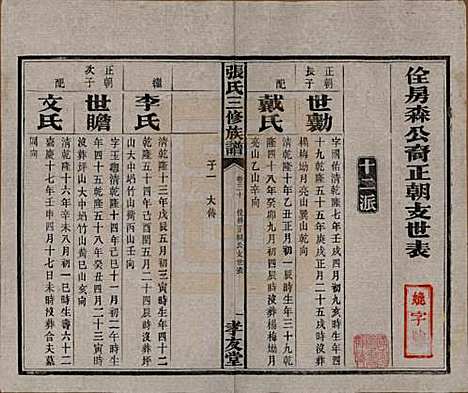 佺房森公裔正朝支世表
十二派
正朝
長子
世勳
字國佑清乾隆七年壬戌四月初九亥時生年四
十九乾隆五十五年庚戌正月二十五戌時沒葬
楊梅坳月亮山巽山乾向
配
戴氏
清乾隆十年乙丑正月初一辰時生年三十九乾
隆四十八年癸卯二月二十一辰時沒葬楊梅坳月
亮山乙山辛向
張氏三修族譜
卷三十
一
孝友堂
子一 大
繼
李氏
清乾隆十三年戊辰五月初三寅時生年四十二
乾隆五十四年己酉五月初二時沒葬坪
山大中塢竹山丙山壬向
正朝
次子
世瞻
字玉
沒葬坪山大中塢竹山
配
文氏
清乾隆十六年辛未八月初一巳時生壽六十二
嘉慶十七年壬申四月十七日未時沒葬合夫墓
同向